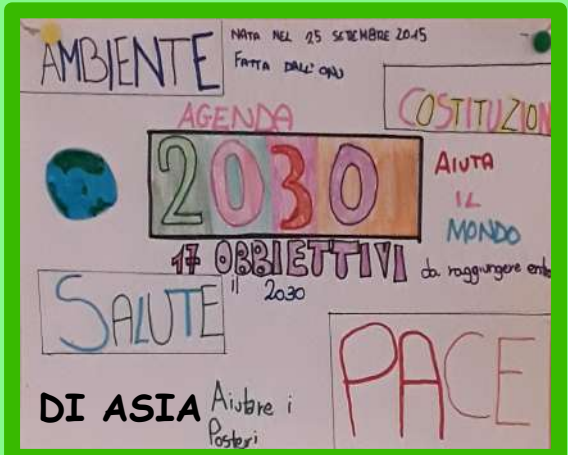 AMBIENTE
NATA NEL 25 SETTEMBRE 2015
FATTA DALL'ONU
COSTITUZION
AGENDA
2030
AIUTA
IL
MONDO
17 OBBIETTIVI da raggiungere entro
il 2030
SALUTE
PACE
DI ASIA
Aiutare i
Posteri